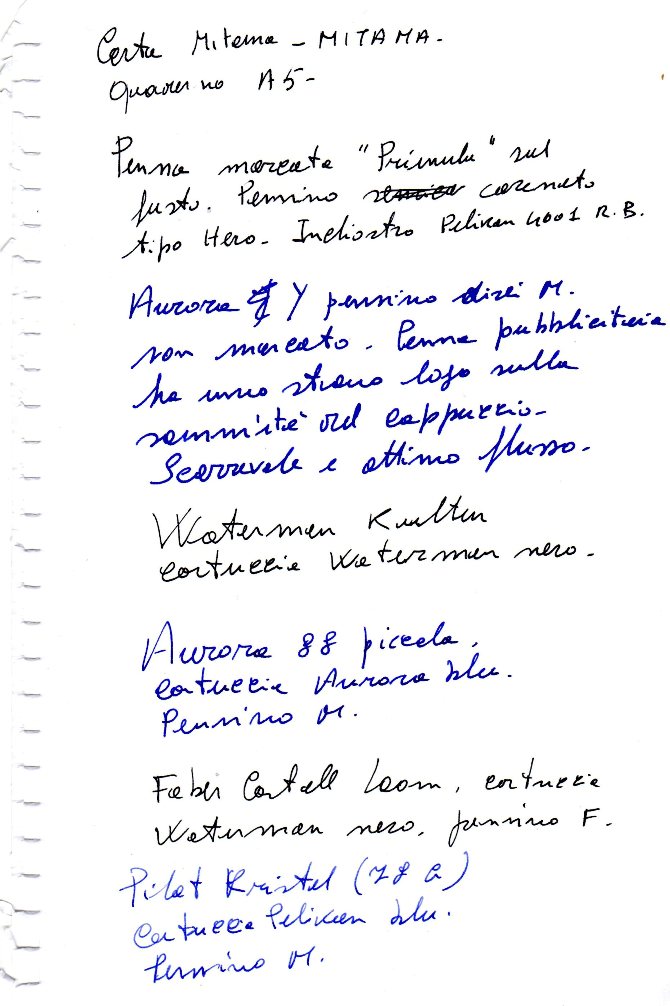 Carta Mitama - MITAMA -
Quaderno A5 -
Penna marcata "Primula" sul
fusto. Pennino carenato
tipo Hero - Inchiostro Pelikan 4001 R.B.
Aurora Y pennino direi M.
non marcato. Penna pubblicitaria
ha uno strano logo sulla
sommità del cappuccio -
Scorrevole e ottimo flusso -
Waterman Kultur
cartuccia Waterman nero -
Aurora 88 piccola,
cartuccia Aurora blu.
Pennino M.
Faber Castell Loom, cartuccia
Waterman nero, pennino F.
Pilot Kristal (78 G)
Cartuccia Pelikan blu.
Pennino M.